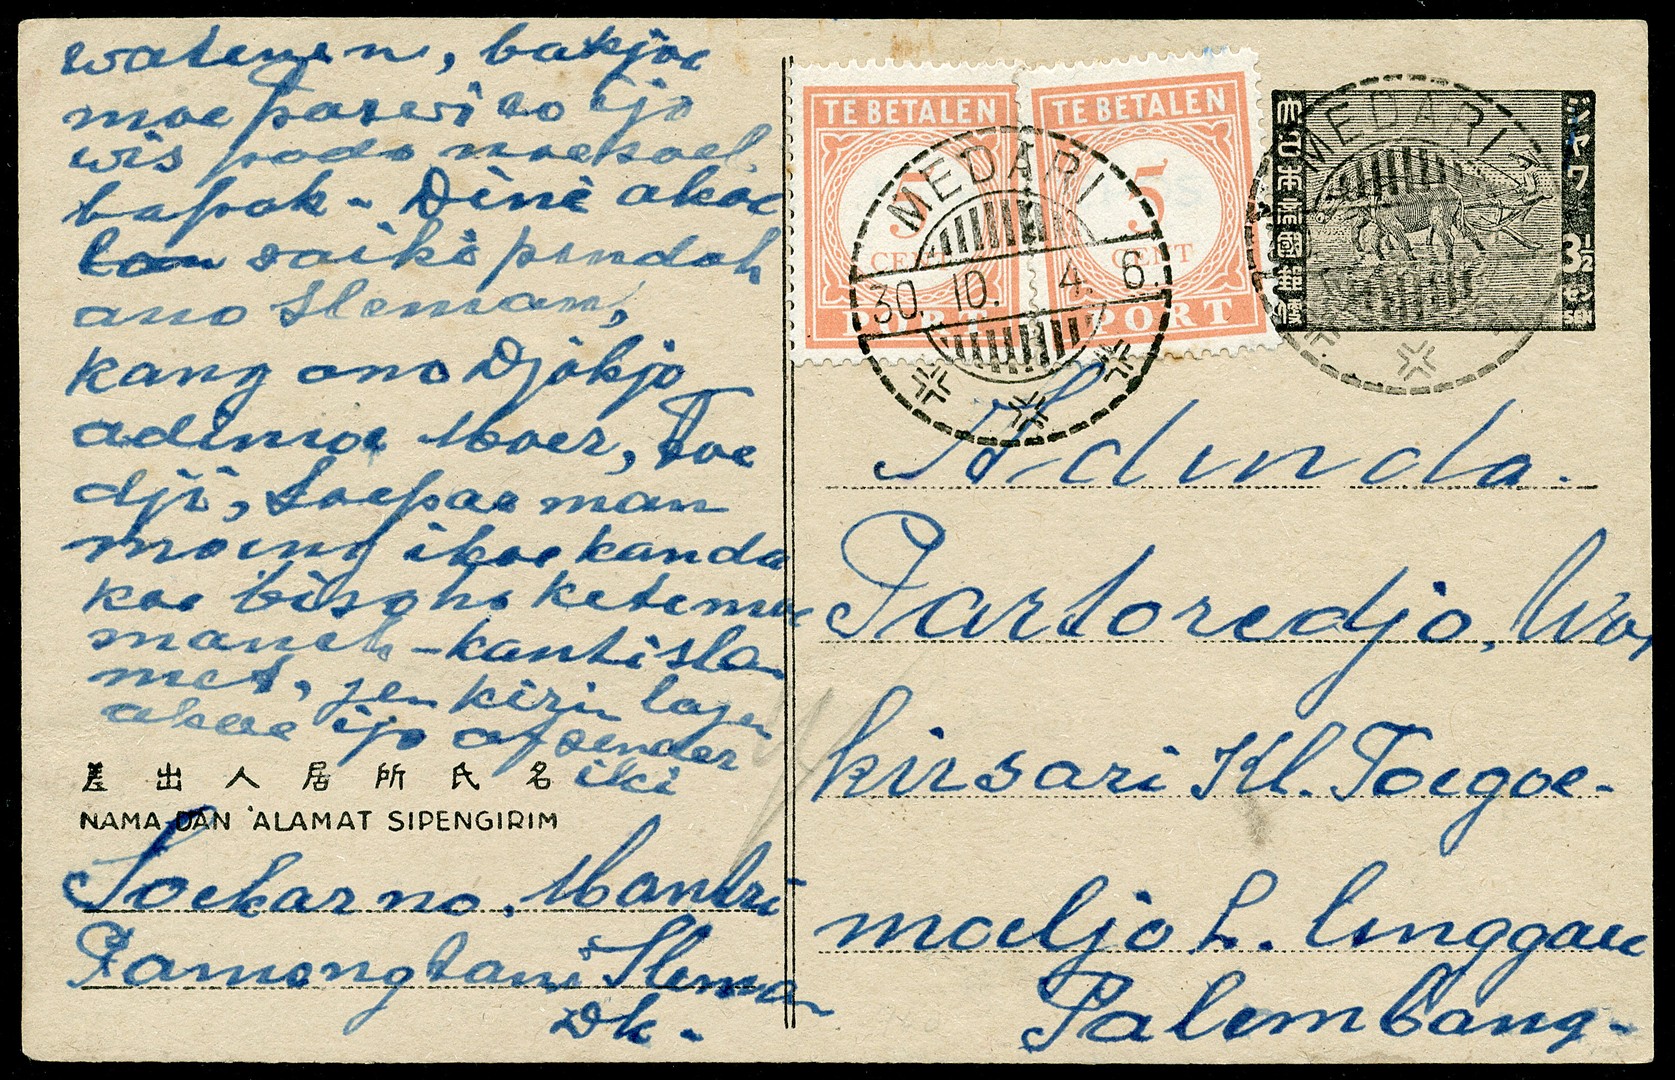 watenen, bakjoe
moe Parwiro ijo
wis podo noesoel
bapak - Dene akoe
lan saiki pindah
ono Sleman,
kang ono Djokjo
adimoe Moer, Toe
dji, Soepae man
moeng ikoe kanda
koe biso ho ketemoe
maneh - kanti sla
met, jen kirim lajen
akoe ijo afsender
iki
差出人居所氏名
NAMA DAN 'ALAMAT SIPENGIRIM
Soekarno, Mantri
Pamong tani Slema
Dk -
TE BETALEN
5
CENT
PORT
TE BETALEN
5
CENT
PORT
MEDARI
30. 10. 4. 6.
MEDARI
ジャワ
3½
SEN
大日本帝國郵便
Adinda.
Partoredjo, Wo
kirsari Kl. Toegoe-
moeljo L. linggau
Palembang -